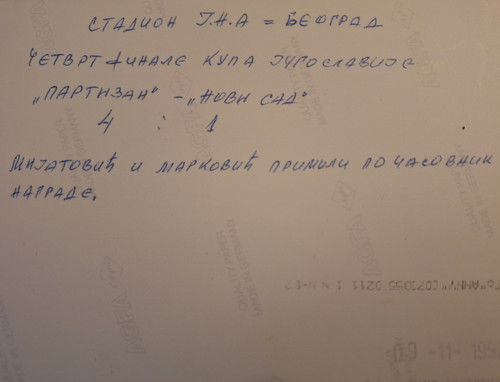 СТАДИОН Ј.Н.А = БЕОГРАД
ЧЕТВРТФИНАЛЕ КУПА ЈУГОСЛАВИЈЕ
„ПАРТИЗАН" – „НОВИ САД"
4 : 1
МИЈАТОВИЋ И МАРКОВИЋ ПРИМИЛИ ПО ЧАСОВНИК
НАГРАДЕ.
-11- 199